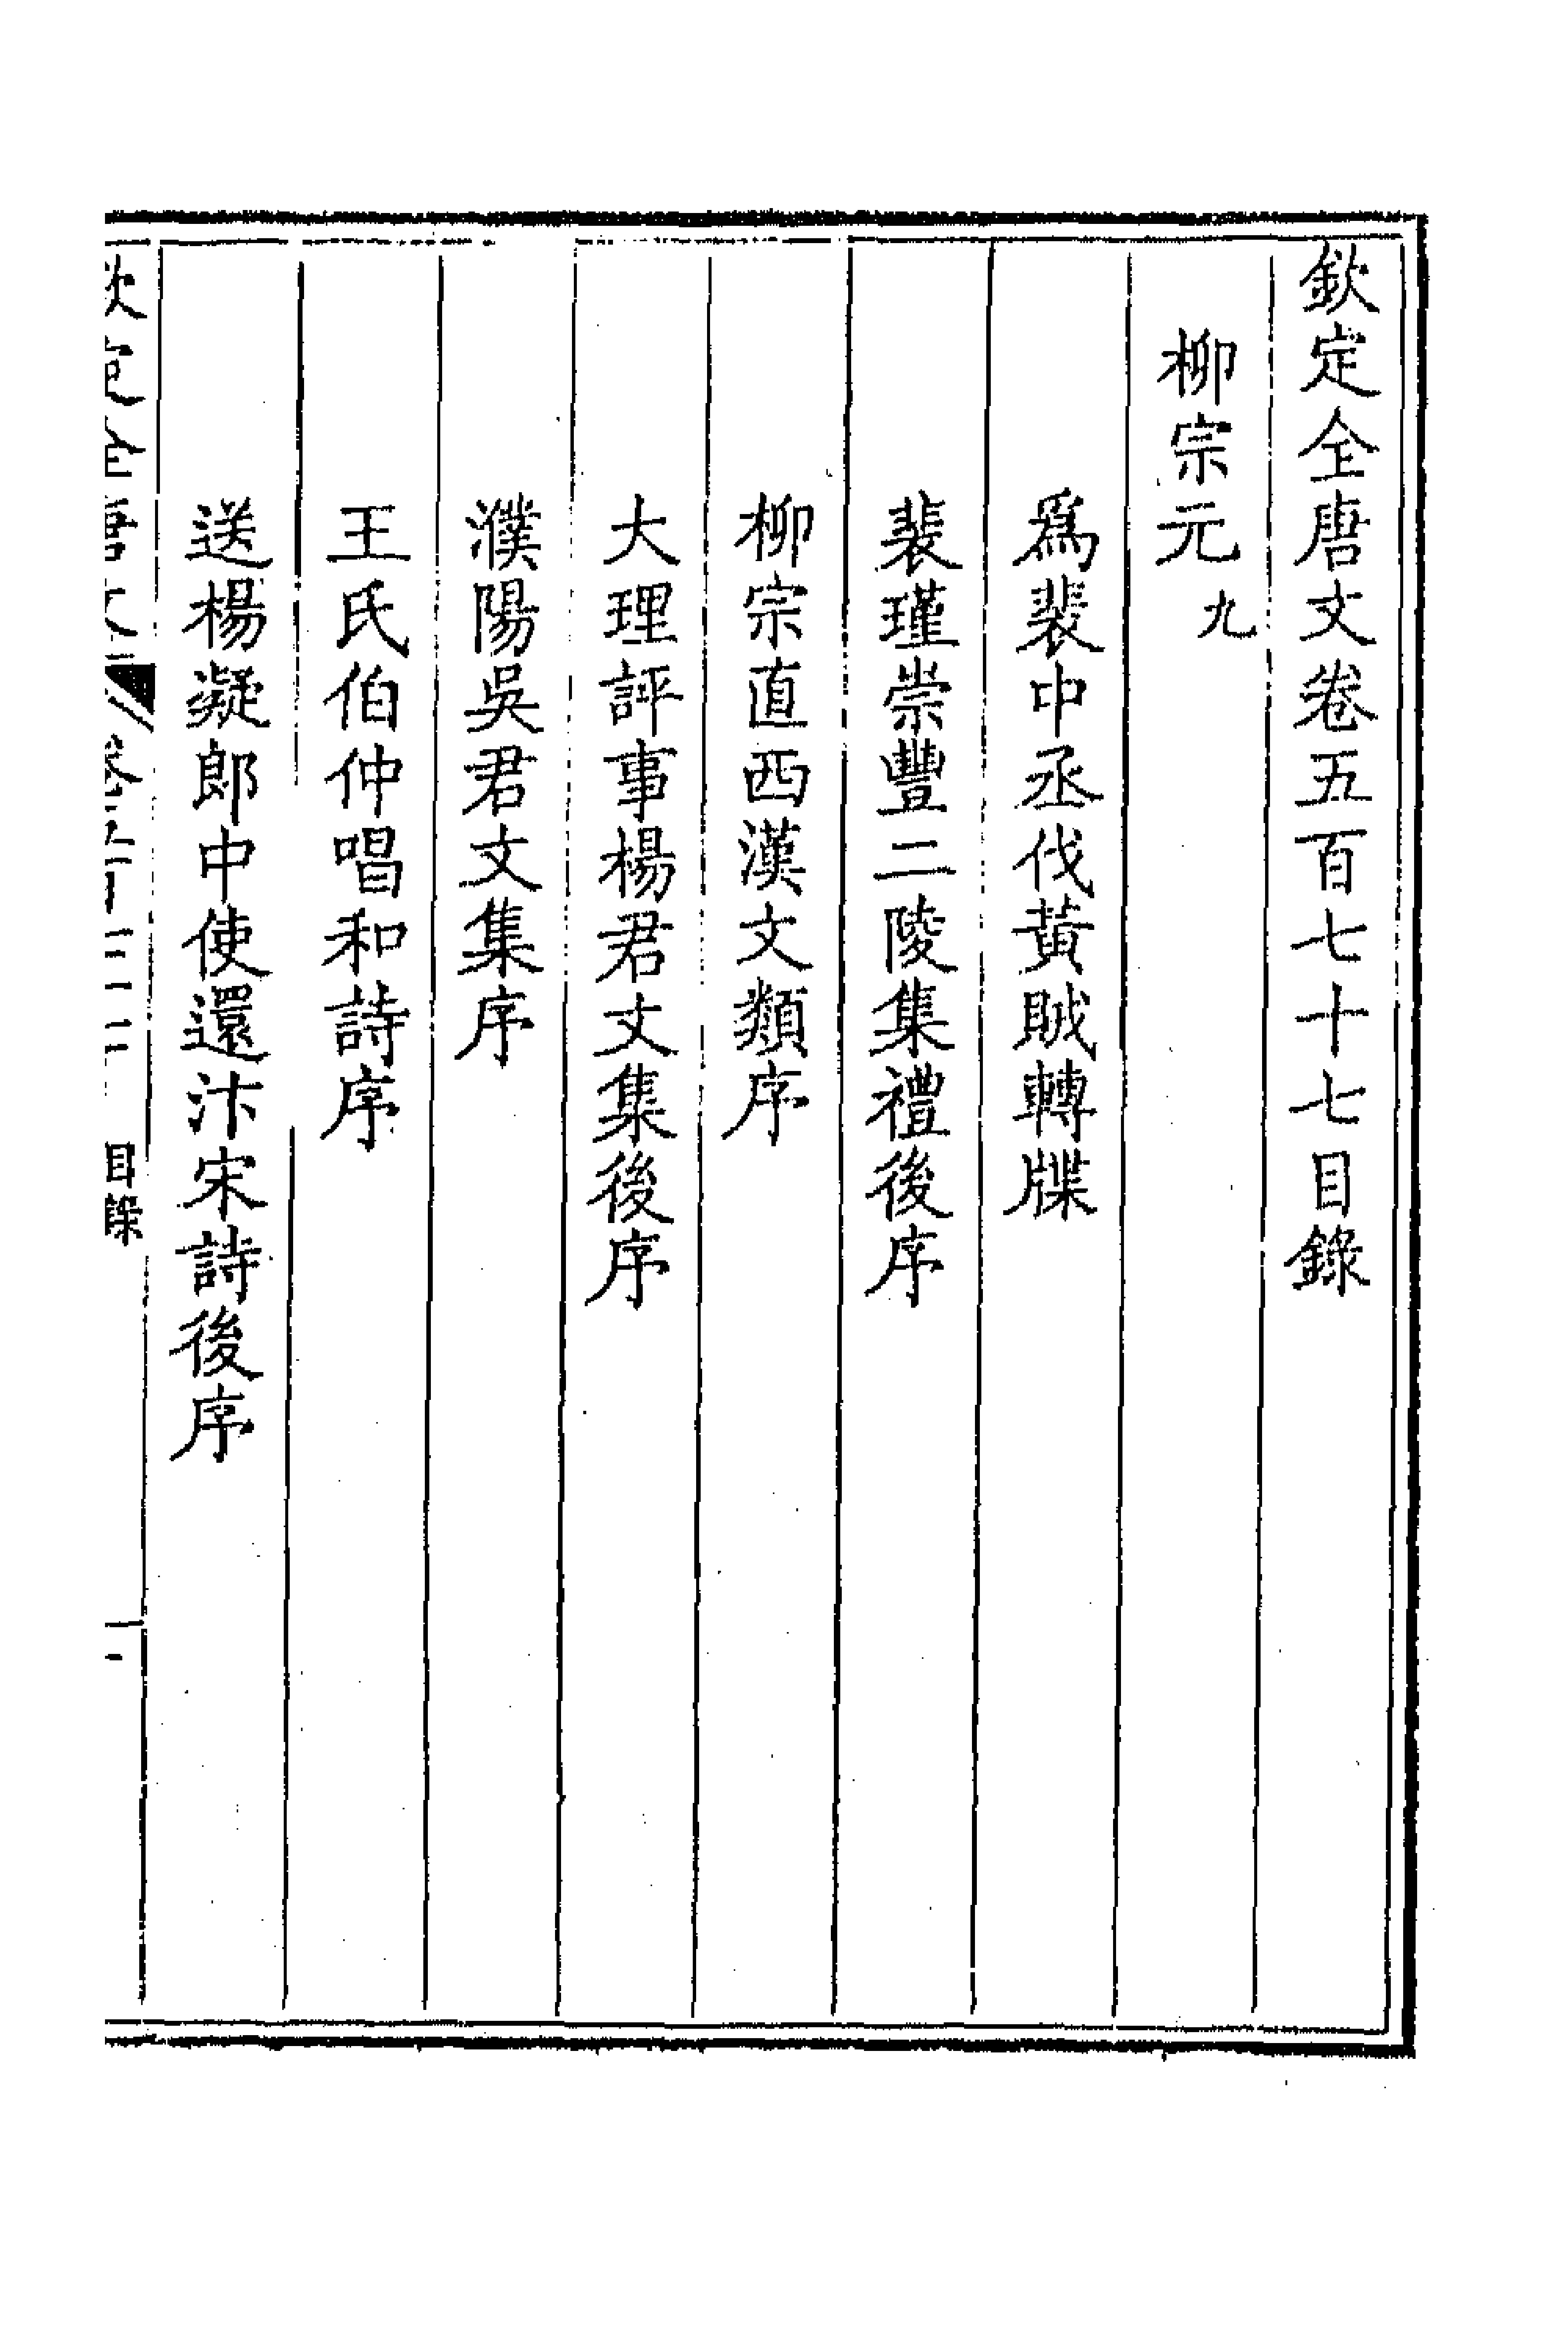 欽定全唐文卷五百七十七目錄
柳宗元九
爲裴中丞伐黃賊轉牒
裴瑾崇豐二陵集禮後序
柳宗直西漢文類序
大理評事楊君文集後序
濮陽吳君文集序
王氏伯仲唱和詩序
送楊凝郎中使還汴宋詩後序
欽定全唐文 目錄